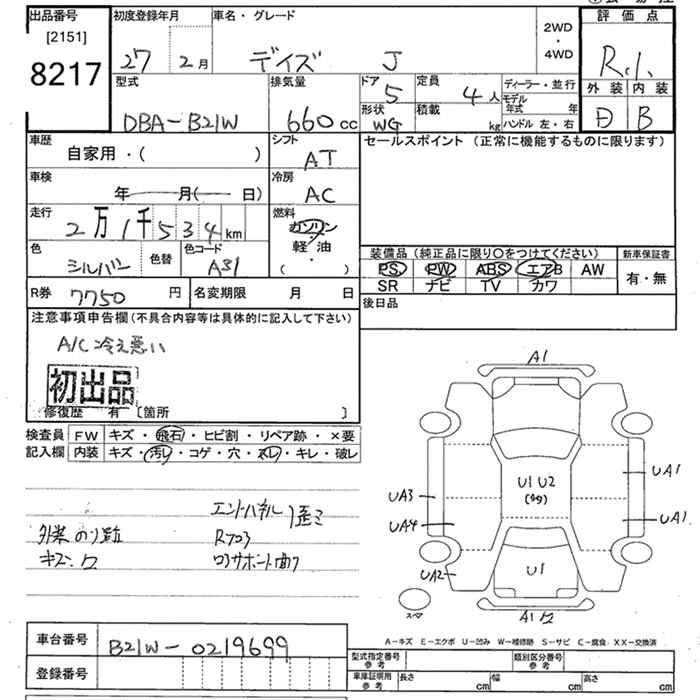 出品番号 初度登録年月 車名・グレード 評価点
[2151]
8217
27 2月 デイズ J 2WD・4WD R.1.
型式 排気量 ドア 5 定員 4人 ディーラー・並行 外装 内装
DBA-B21W 660cc 形状 WG 積載 kg モデル年式 年 ハンドル 左・右 D B
車歴 自家用・( ) シフト AT セールスポイント (正常に機能するものに限ります)
車検 年 月( 日) 冷房 AC
走行 2万1千534km 燃料 ガソリン
軽油
( )
色 シルバー 色替 色コード A31 装備品 (純正品に限り○をつけてください) 新車保証書
PS PW ABS エアB AW 有・無
SR ナビ TV カワ
R券 7750円 名変期限 月 日 後日品
注意事項申告欄(不具合内容等は具体的に記入して下さい)
A/C冷え悪い
初出品
修復歴 有 [箇所 ]
検査員 FW キズ・飛石・ヒビ割・リペア跡・×要
記入欄 内装 キズ・汚レ・コゲ・穴・スレ・キレ・破レ
A1
U1 U2
UA1
UA3
UA4 UA1
UA2 U1
スペア
A1
エンドパネル歪ミ
外装 のり跡 Rフロア
キズ・
コアサポート曲り
A-キズ E-エクボ U-凹み W-補修跡 S-サビ C-腐食 XX-交換済
車台番号 B21W-0219699
登録番号
型式指定番号 参考 類別区分番号 参考
車庫証明用 参考 長さ cm 幅 cm 高さ cm